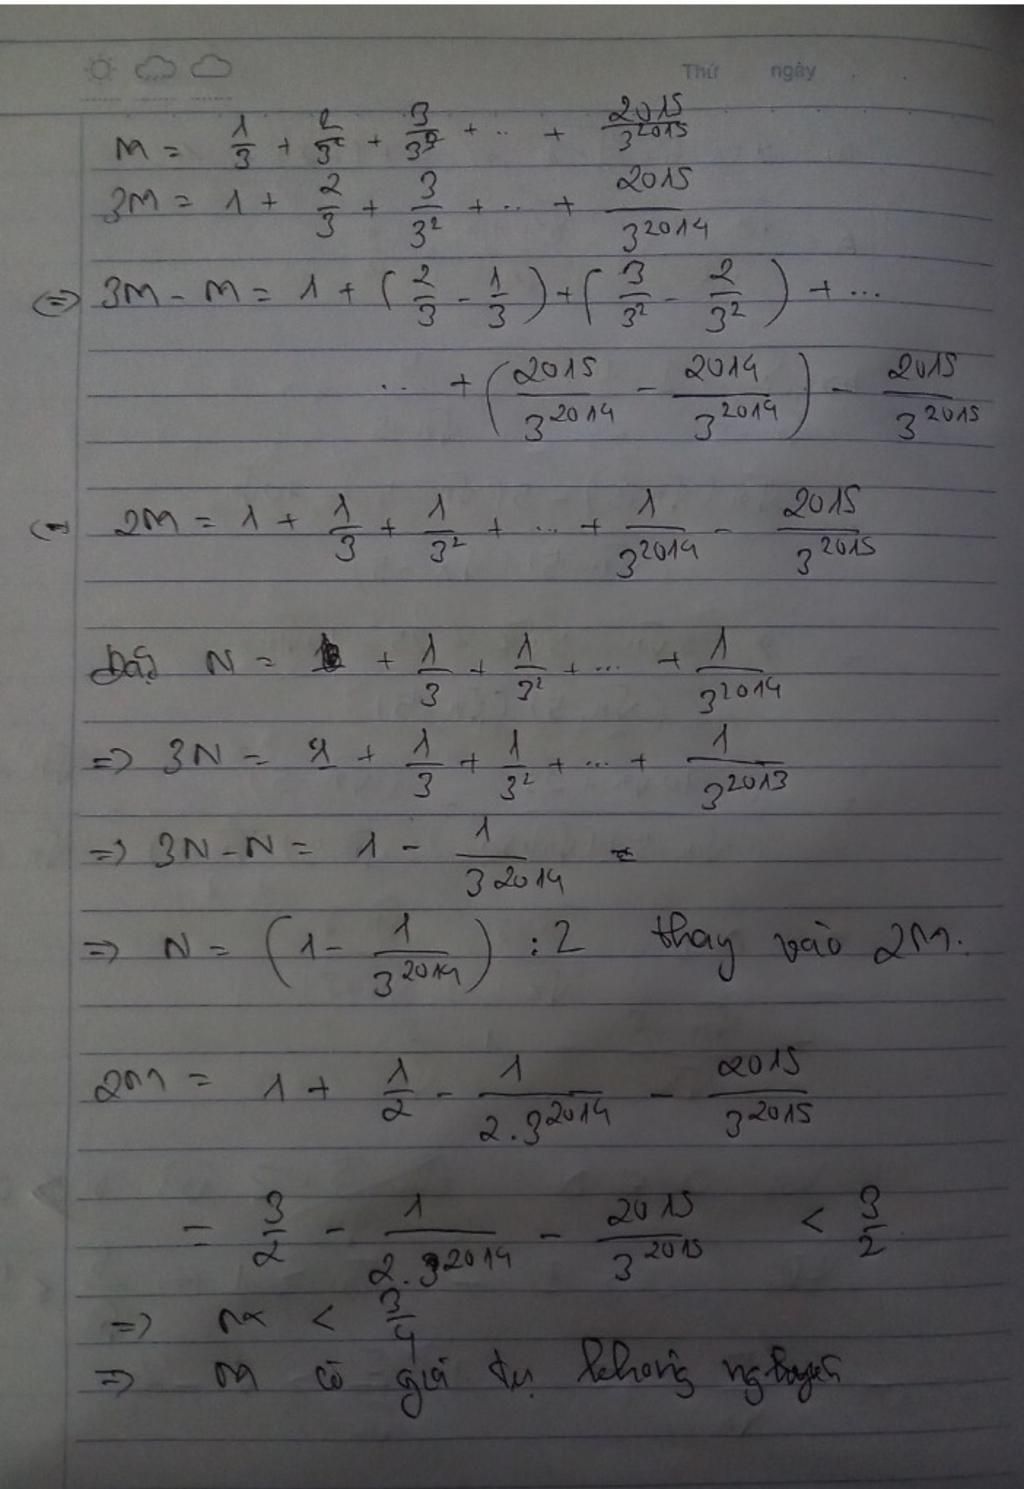 Thứ ngày
M = 1/3 + 2/3² + 3/3³ + .. + 2015/3^2015
3M = 1 + 2/3 + 3/3² + .. + 2015/3^2014
(=) 3M - M = 1 + (2/3 - 1/3) + (3/3² - 2/3²) + ...
.. + (2015/3^2014 - 2014/3^2014) - 2015/3^2015
2M = 1 + 1/3 + 1/3² + ... + 1/3^2014 - 2015/3^2015
Đặt N = + 1/3 + 1/3² + ... + 1/3^2014
=> 3N = 1 + 1/3 + 1/3² + ... + 1/3^2013
=> 3N - N = 1 - 1/3^2014
=> N = (1 - 1/3^2014) : 2 thay vào 2M.
2M = 1 + 1/2 - 1/2.3^2014 - 2015/3^2015
= 3/2 - 1/2.3^2014 - 2015/3^2015 < 3/2
=> M < 3/4
=> M có giá trị không nguyên